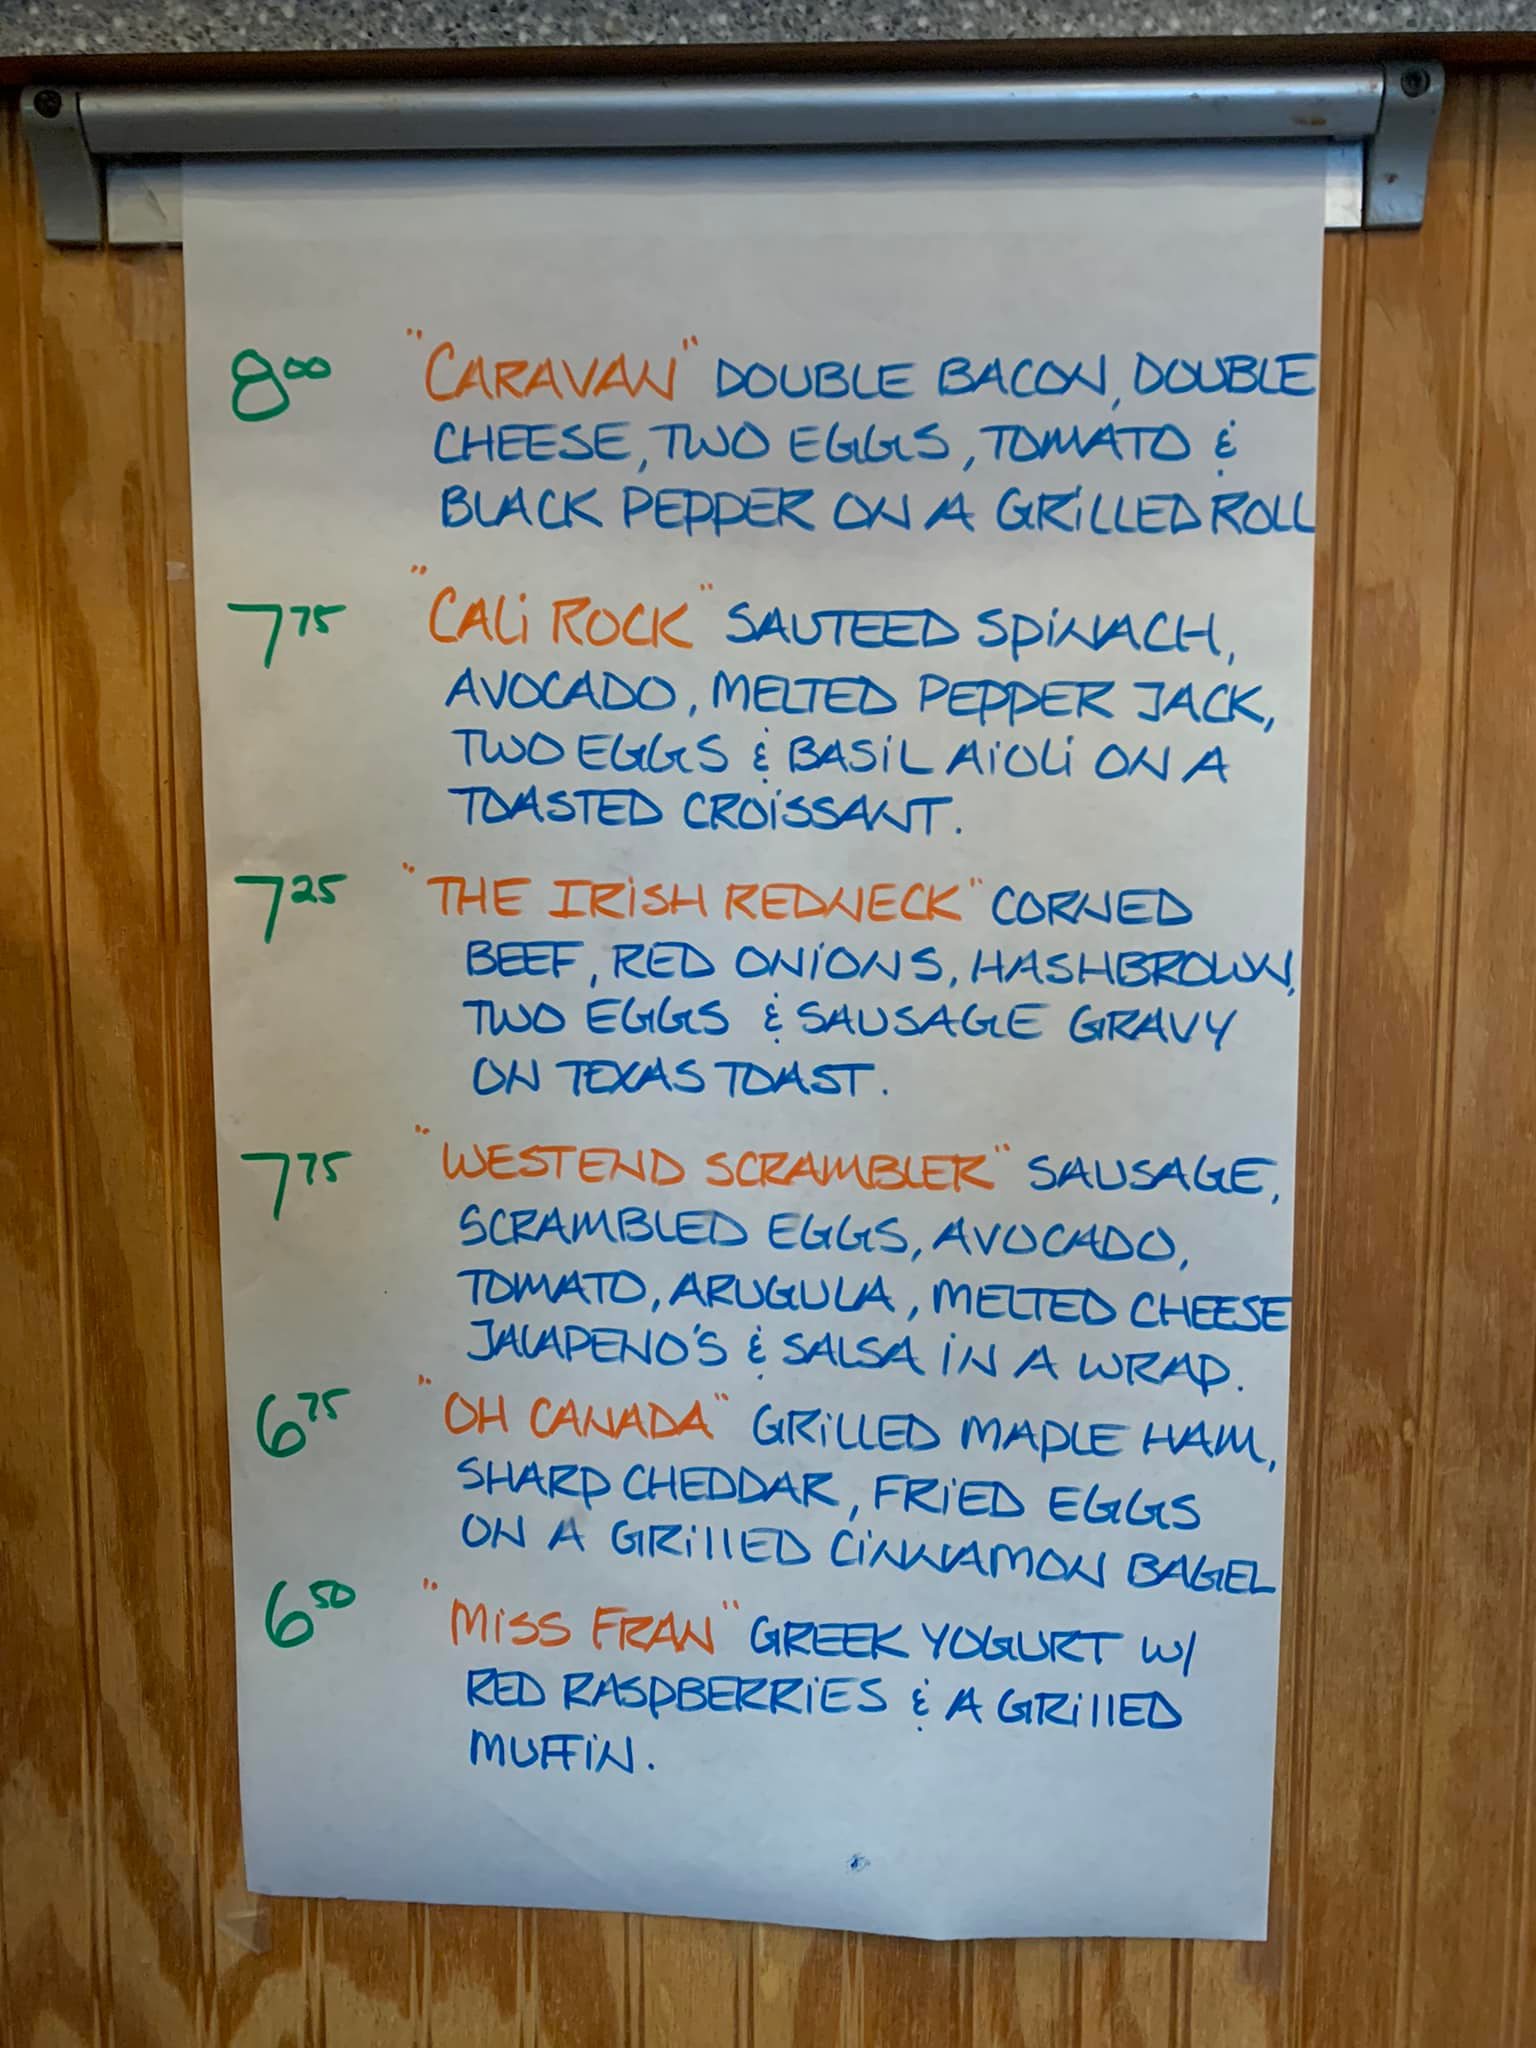 8.00 "CARAVAN" DOUBLE BACON, DOUBLE
CHEESE, TWO EGGS, TOMATO &
BLACK PEPPER ON A GRILLED ROLL
7.75 "CALI ROCK" SAUTEED SPINACH,
AVOCADO, MELTED PEPPER JACK,
TWO EGGS & BASIL AIOLI ON A
TOASTED CROISSANT.
7.25 "THE IRISH REDNECK" CORNED
BEEF, RED ONIONS, HASHBROWN,
TWO EGGS & SAUSAGE GRAVY
ON TEXAS TOAST.
7.75 "WESTEND SCRAMBLER" SAUSAGE,
SCRAMBLED EGGS, AVOCADO,
TOMATO, ARUGULA, MELTED CHEESE
JALAPENO'S & SALSA IN A WRAP.
6.75 "OH CANADA" GRILLED MAPLE HAM,
SHARP CHEDDAR, FRIED EGGS
ON A GRILLED CINNAMON BAGEL
6.50 "MISS FRAN" GREEK YOGURT W/
RED RASPBERRIES & A GRILLED
MUFFIN.